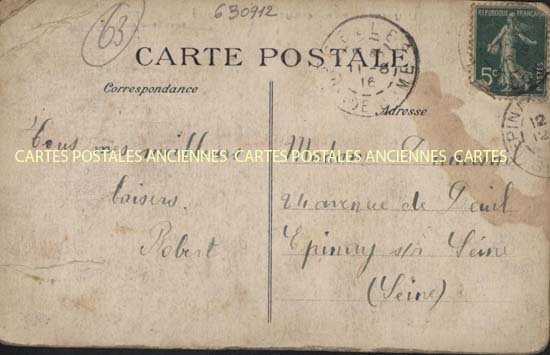 63
630912
CARTE POSTALE
Correspondance
Adresse
REPUBLIQUE FRANÇAISE
5c
POSTES
16
12
CARTES POSTALES ANCIENNES CARTES POSTALES ANCIENNES CARTES
Tous mes meilleurs
baisers.
Robert
Madame
24 avenue de Deuil
Epinay s/r Seine
(Seine)